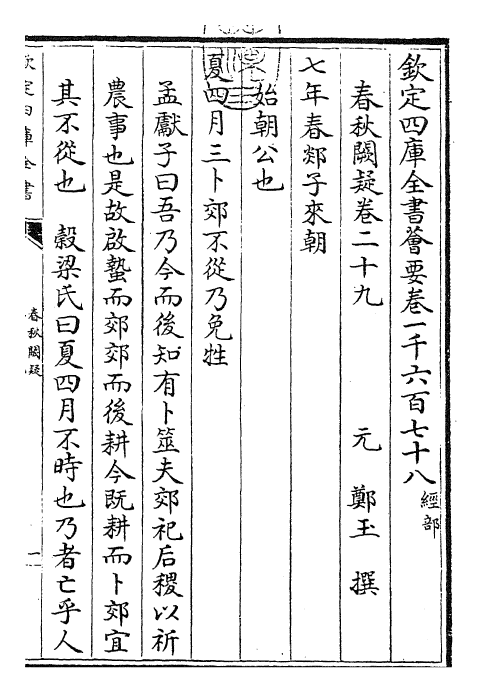 欽定四庫全書薈要卷一千六百七十八 經部
春秋闕疑卷二十九 元 鄭玉 撰
七年春郯子來朝
始朝公也
夏四月三卜郊不從乃免牲
孟獻子曰吾乃今而後知有卜筮夫郊祀后稷以祈
農事也是故啟蟄而郊郊而後耕今既耕而卜郊宜
其不從也 穀梁氏曰夏四月不時也乃者亡乎人
欽定四庫全書
春秋闕疑
一